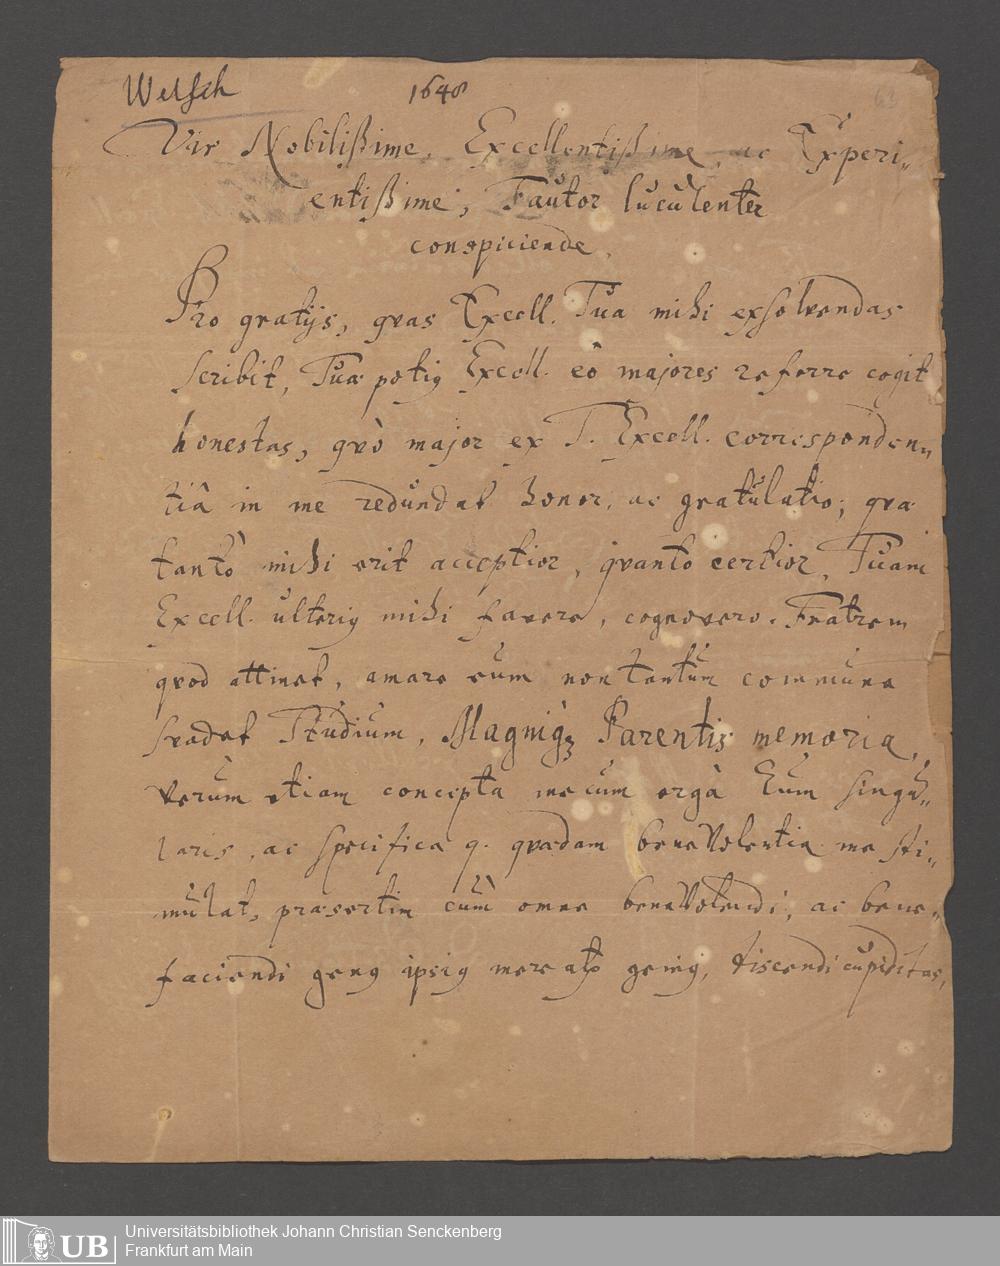 Welsch 1648 63
Vir Nobilißime, Excellentißime, ac Experi-
entißime, Fautor luculenter
conspiciende,
Pro gratijs, qvas Excell. Tua mihi exsolvendas
scribit, Tuæ potiꝯ Excell. eò majores referre cogit
honestas, qvò major ex T. Excell. corresponden-
tiâ in me redundat honor, ac gratulatio; qvæ
tantò mihi erit acceptior, qvantò certior, Tuam
Excell. ulteriꝯ mihi favere, cognovero. Fratrem
qvod attinet, amare eum non tantum commune
svadet Studium, Magniqꝫ Parentis memoria,
verùm etiam concepta mecum ergà Eum singu-
laris, ac specifica q. qvædam benevolentia me sti-
mulat, præsertim cùm omne benevolendi, ac bene-
faciendi genꝯ ipsiꝯ mereatꝛ geniꝯ, discendi cupiditas,
UB Universitätsbibliothek Johann Christian Senckenberg
Frankfurt am Main